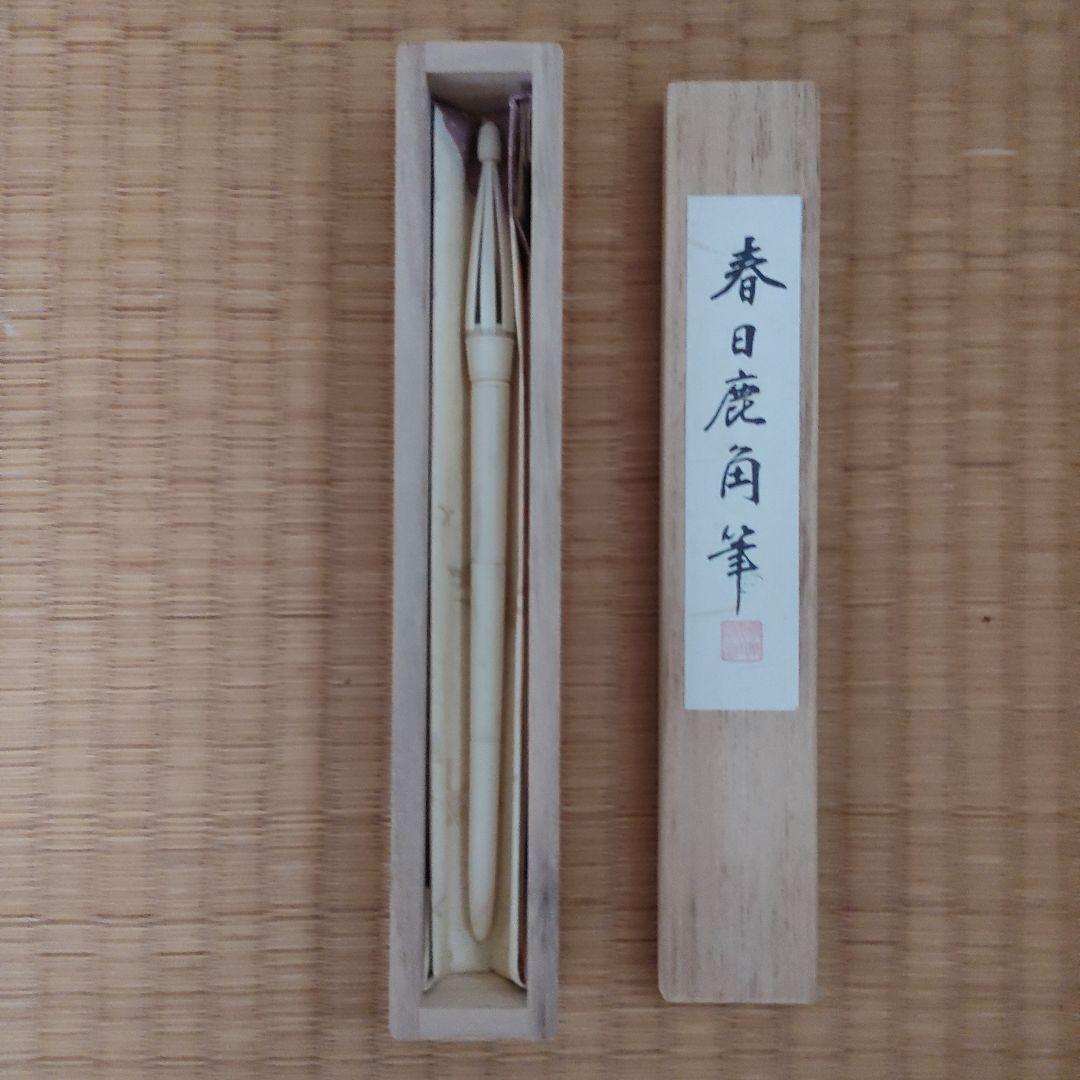 春日鹿角筆